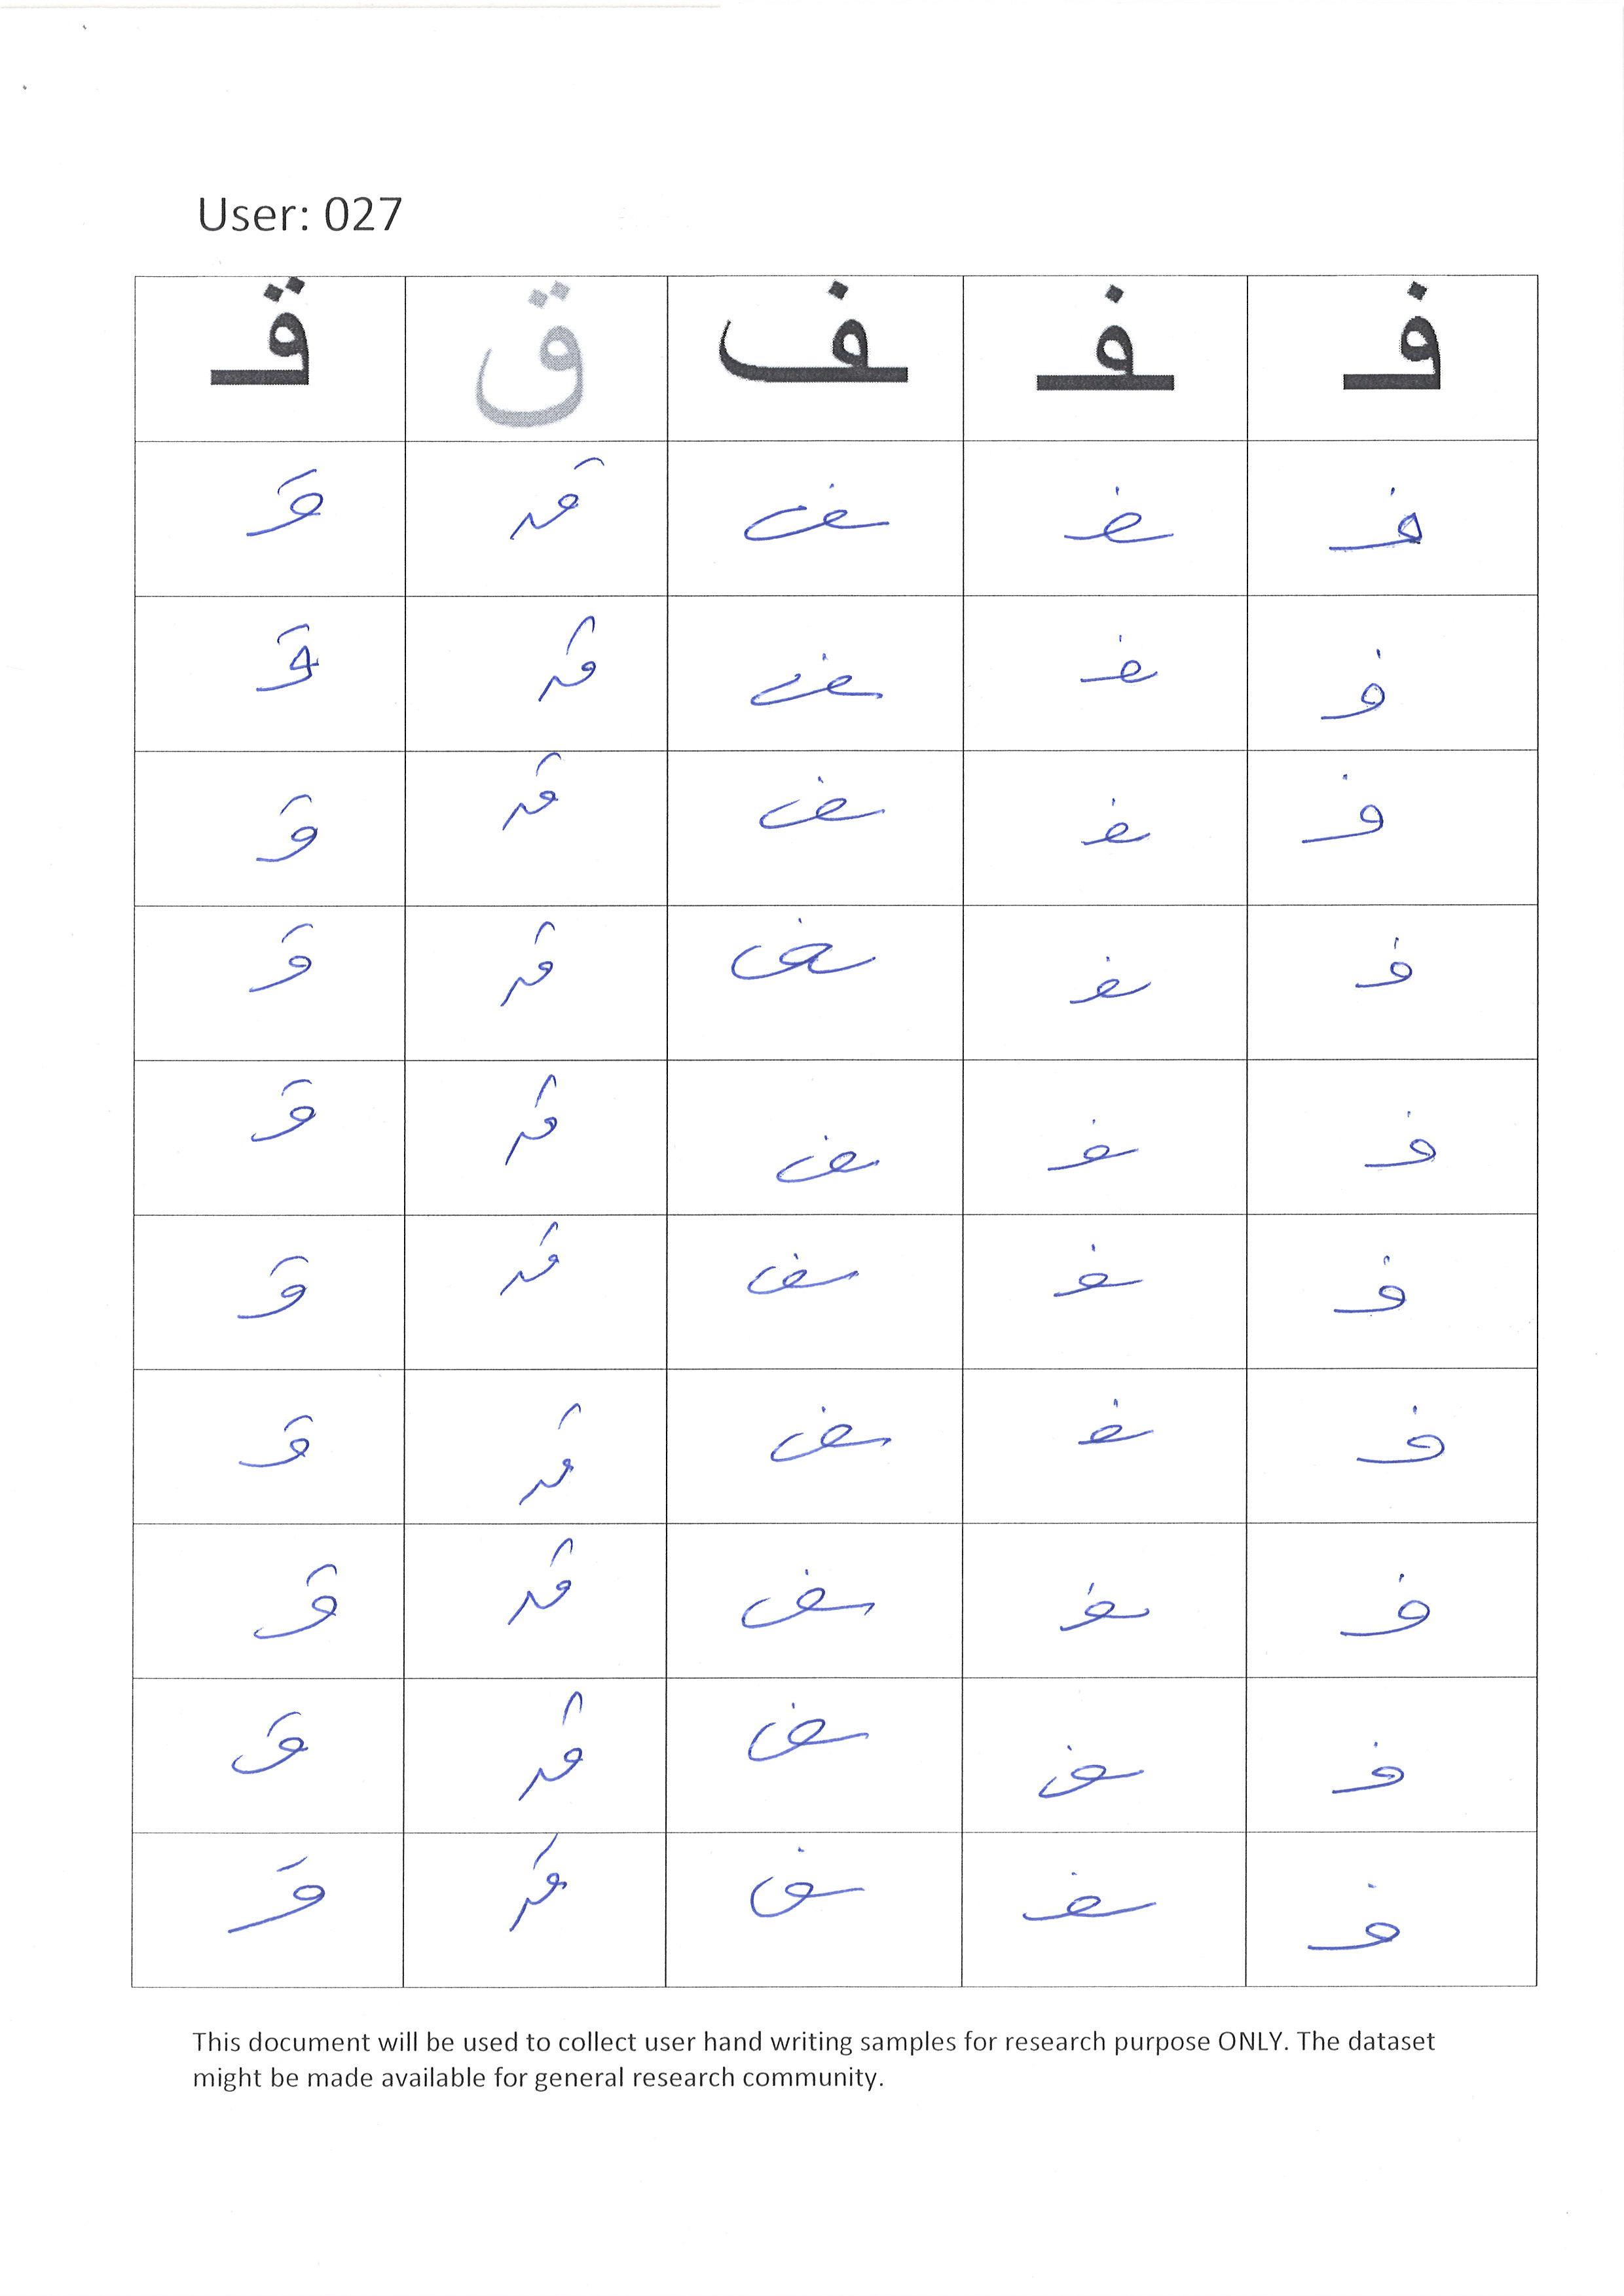 User: 027
فـ ـفـ ـف ق قـ
فـ ـفـ ـف ق قـ
فـ ـفـ ـف ق قـ
فـ ـفـ ـف ق قـ
فـ ـفـ ـف ق قـ
فـ ـفـ ـف ق قـ
فـ ـفـ ـف ق قـ
فـ ـفـ ـف ق قـ
فـ ـفـ ـف ق قـ
فـ ـفـ ـف ق قـ
فـ ـفـ ـف ق قـ
This document will be used to collect user hand writing samples for research purpose ONLY. The dataset
might be made available for general research community.